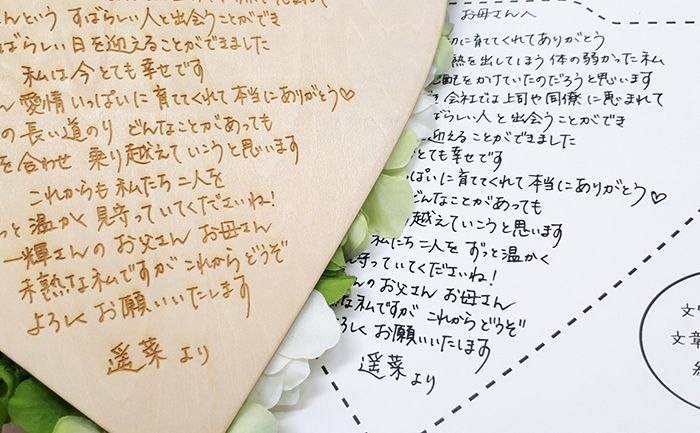 さんという すばらしい人と出会うことができ
ばらしい日を迎えることができました
私は今とても幸せです
ん 愛情いっぱいに育ててくれて本当にありがとう♡
の長い道のり どんなことがあっても
を合わせ 乗り越えていこうと思います
これからも私たち二人を
っと温かく見守っていてくださいね!
一輝さんのお父さん お母さん
未熟な私ですが これからどうぞ
よろしくお願いいたします
遥菜より
お母さんへ
切に育ててくれてありがとう
熱を出してしまう体の弱かった私
配をかけていたのだろうと思います
き 会社では上司や同僚に恵まれて
ばらしい人と出会うことができ
に迎えることができました
とても幸せです
っぱいに育ててくれて本当にありがとう♡
どんなことがあっても
越えていこうと思います
私たち二人を ずっと温かく
守っていてくださいね!
んのお父さん お母さん
な私ですが これからどうぞ
ろしくお願いいたします
遥菜より
文
文章